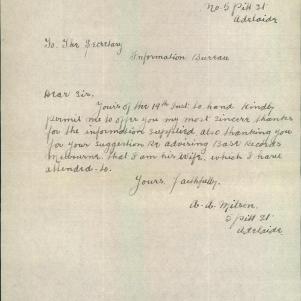 No. 5 Pitt St
Adelaide
To. The Secretary
Information Bureau
Dear Sir.
Yours of the 19th Inst. to hand Kindly
permit me to offer you my most sincere thanks
for the information supplied also thanking you
for your suggestion re advising Base Records
Melbourne. that I am his wife. which I have
attended-to.
Yours faithfully.
Wilson.
5 Pitt St
Adelaide.